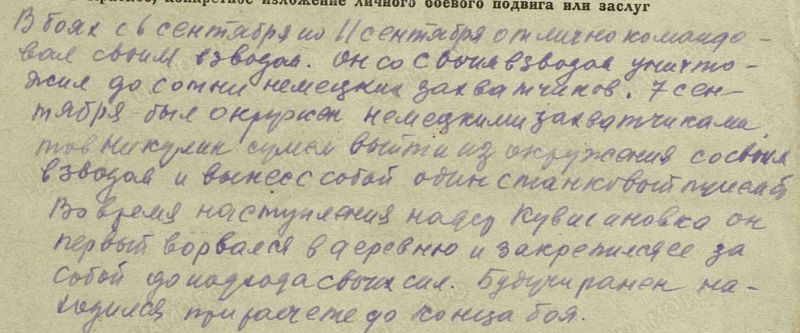 краткое, конкретное изложение личного боевого подвига или заслуг
В боях с 6 сентября по 11 сентября отлично командо-
вал своим взводом. Он со своим взводом уничто-
жил до сотни немецких захватчиков. 7 сен-
тября был окружен немецкими захватчиками,
тов Никулин сумел выйти из окружения со своим
взводом и вынес с собой один станковый пулемёт
Во время наступления на дер Кувшиновка он
первый ворвался в деревню и закрепился за
собой до подхода своих сил. Будучи ранен на-
ходился при расчете до конца боя.